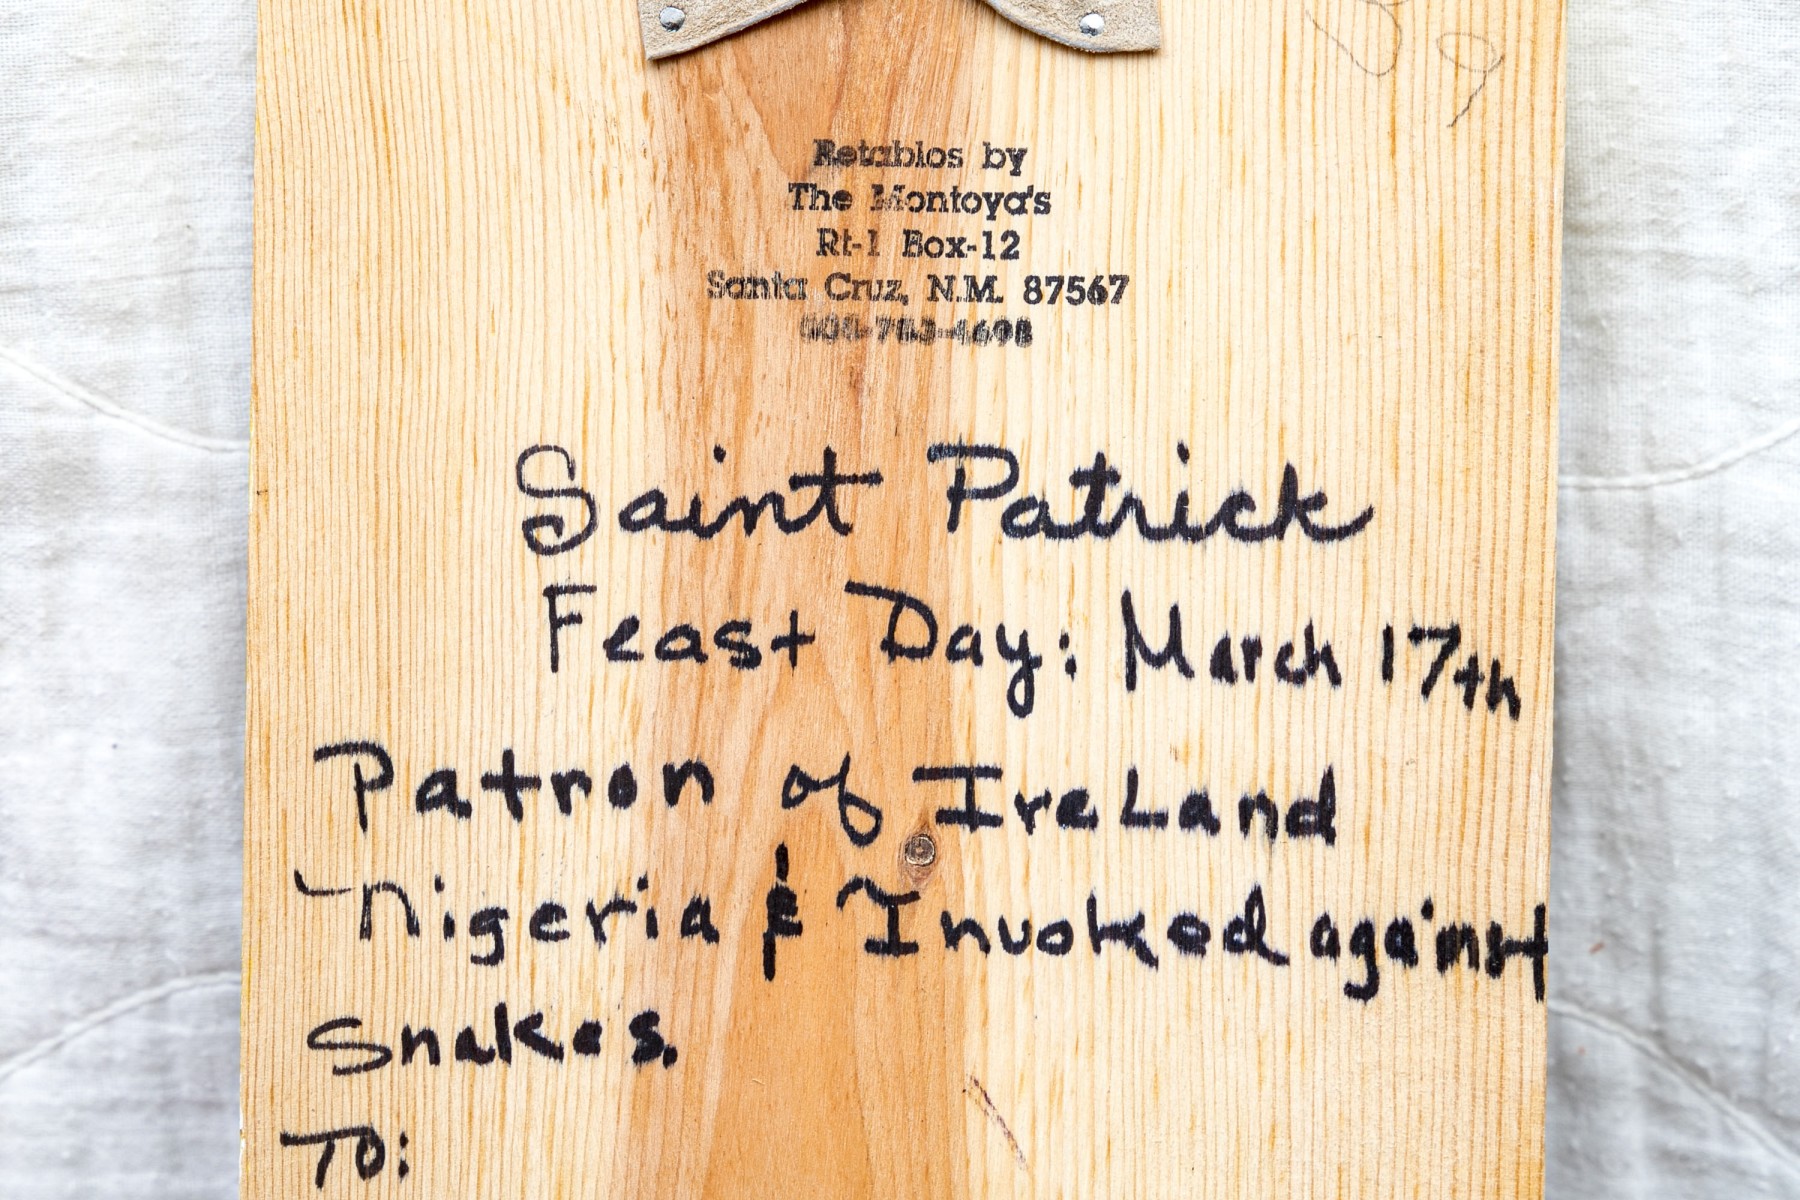 Retablos by
The Montoya's
Rt-1 Box-12
Santa Cruz, N.M. 87567
Saint Patrick
Feast Day: March 17th
Patron of Ireland
Nigeria & Invoked against
Snakes.
To: